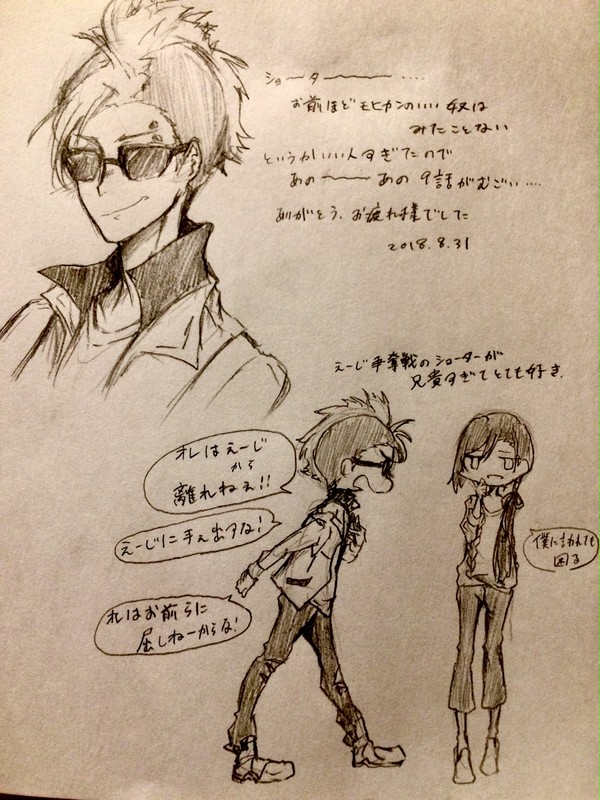 ショーター‥‥
お前ほどモヒカンのいい奴は
みたことない
というかいい人すぎたので
あの〜〜あの9話がむごい‥‥
ありがとう、お疲れ様でした
2018.8.31
えーじ争奪戦のショーターが
兄貴すぎてとても好き.
オレはえーじ
から
離れねェ!!
えーじに手ェ出すな!
オレはお前らに
屈しねーからな!
僕に言われても
困る